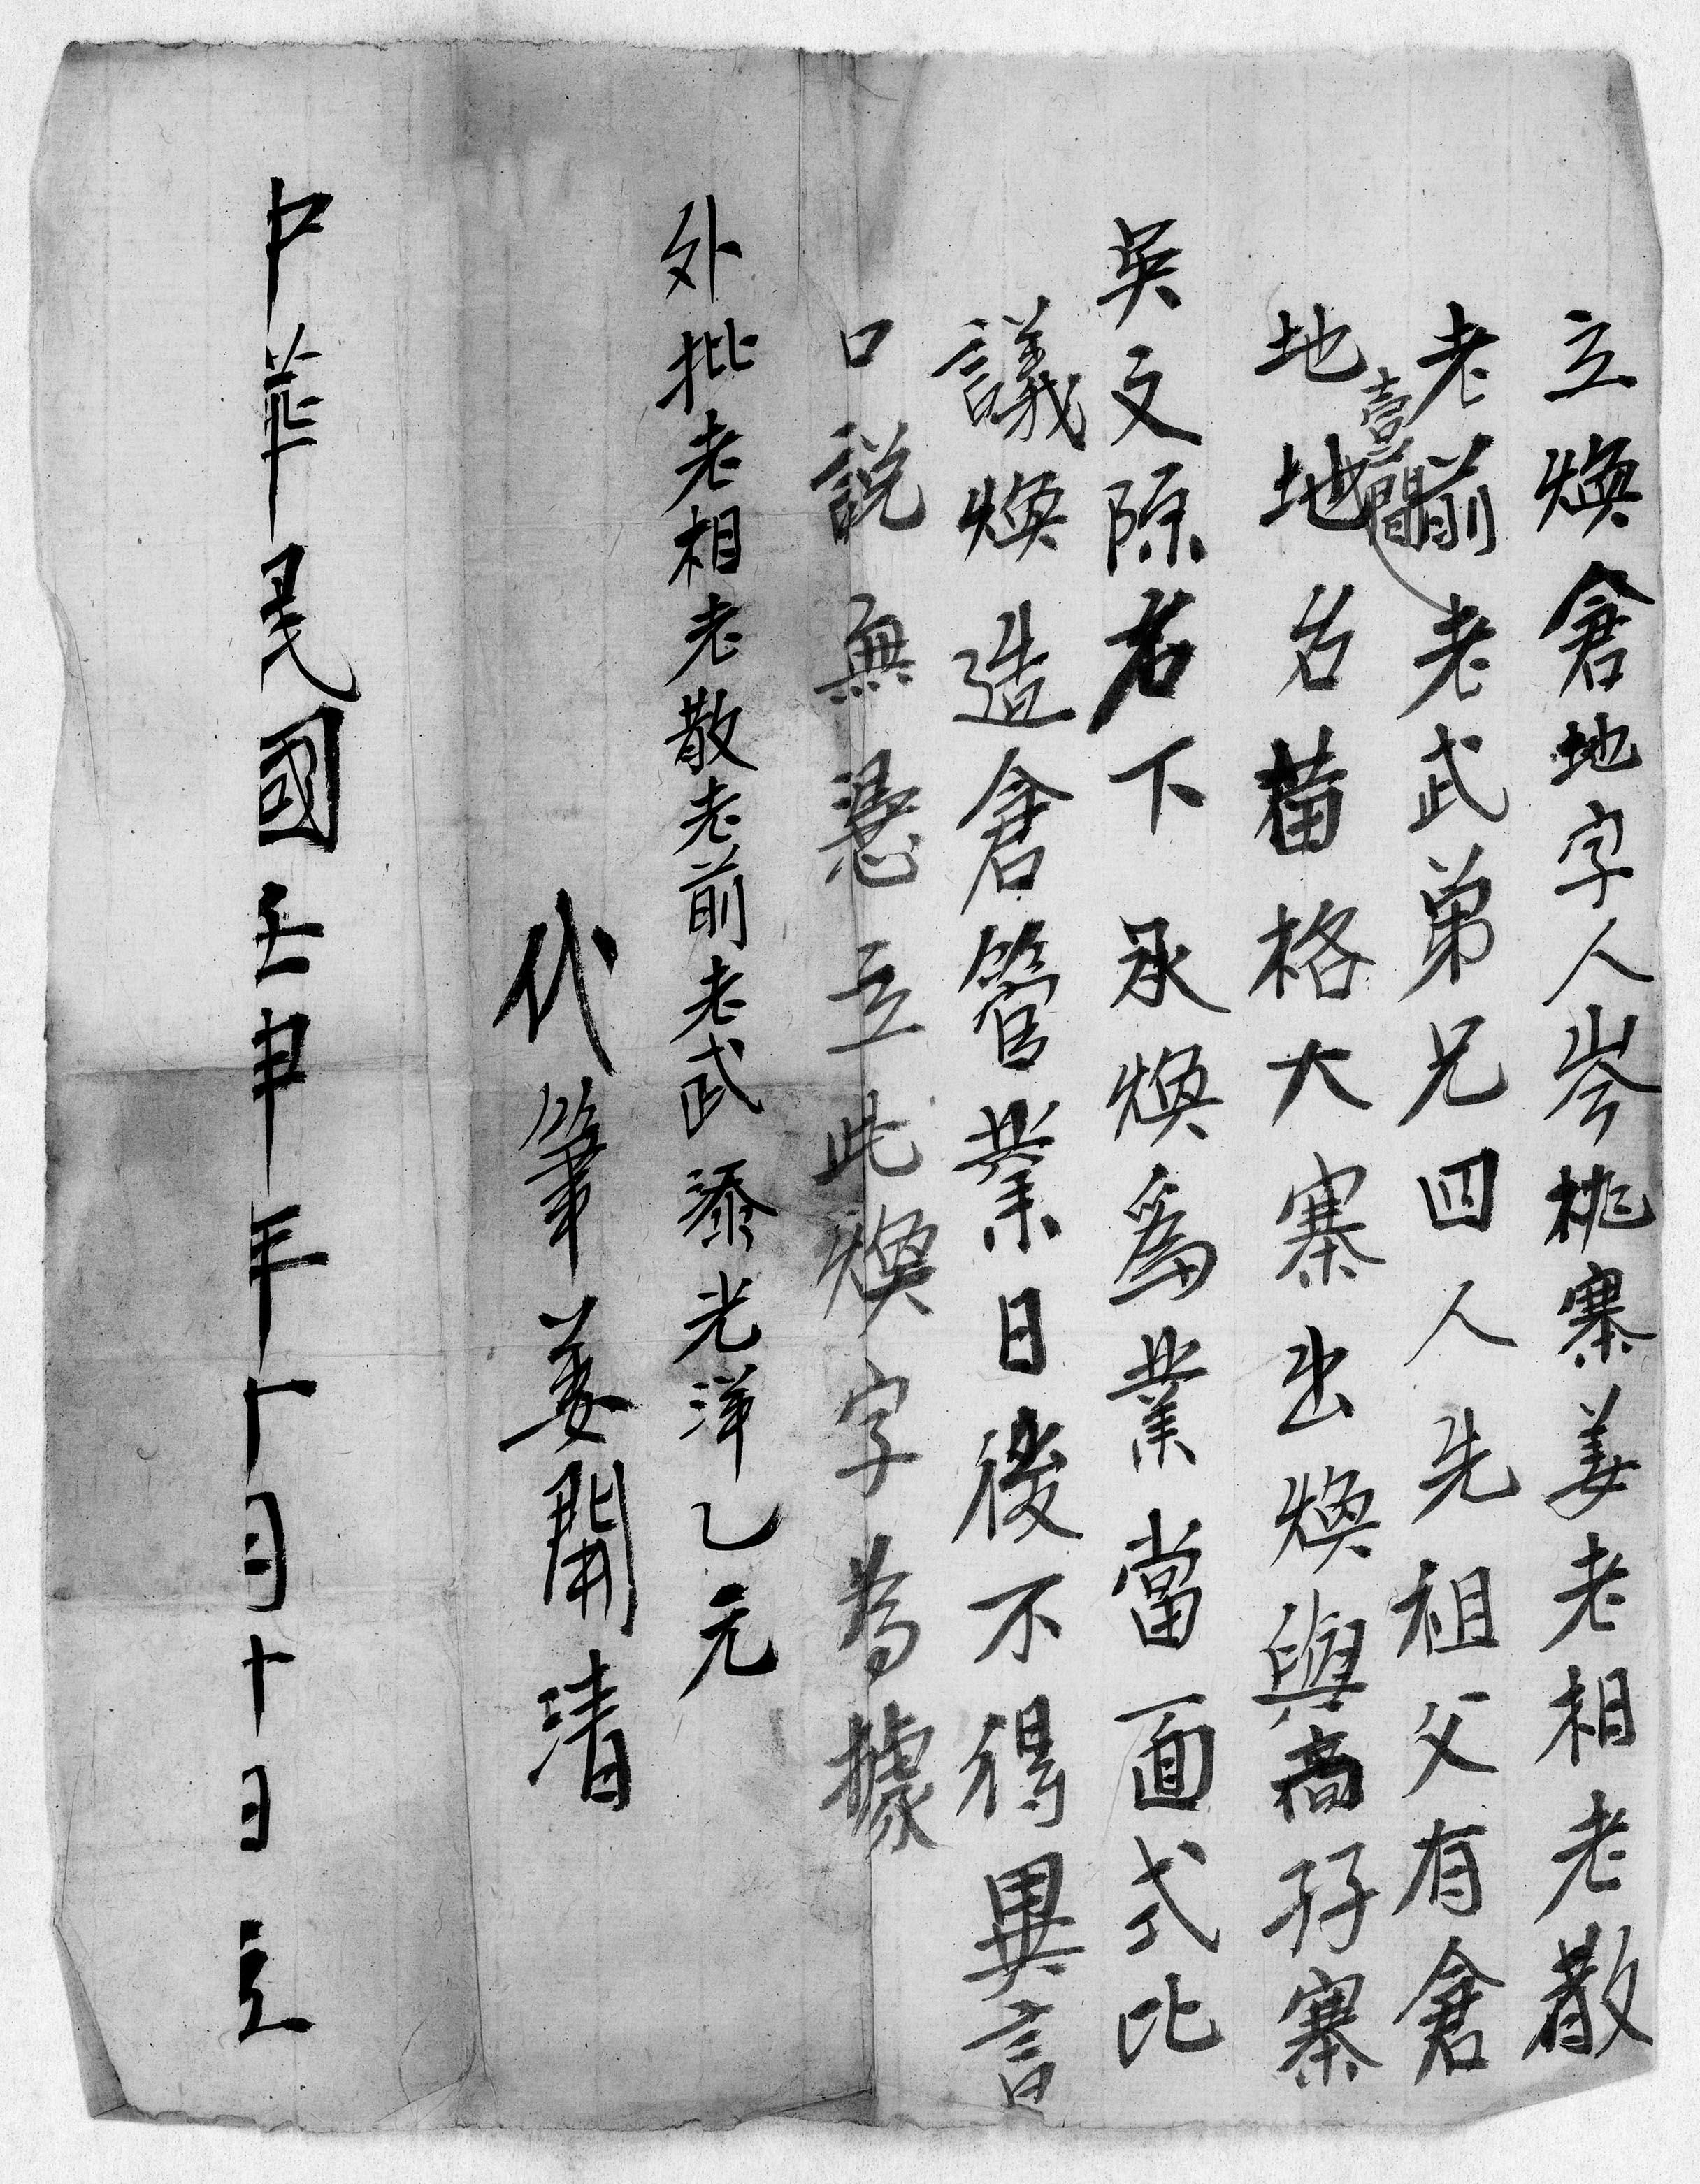 立煥倉地字人岑桃寨姜老相老散
老前老武弟兄四人先祖父有倉
地壹間地名苗格大寨出煥與高孖寨
吳文除名下承煥為業當面式比
議煥造倉管業日後不得異言
口說無憑立此煥字為據
外批老相老散老前老武添光洋乙元
代筆姜開清
中華民國壬申年十月十日立